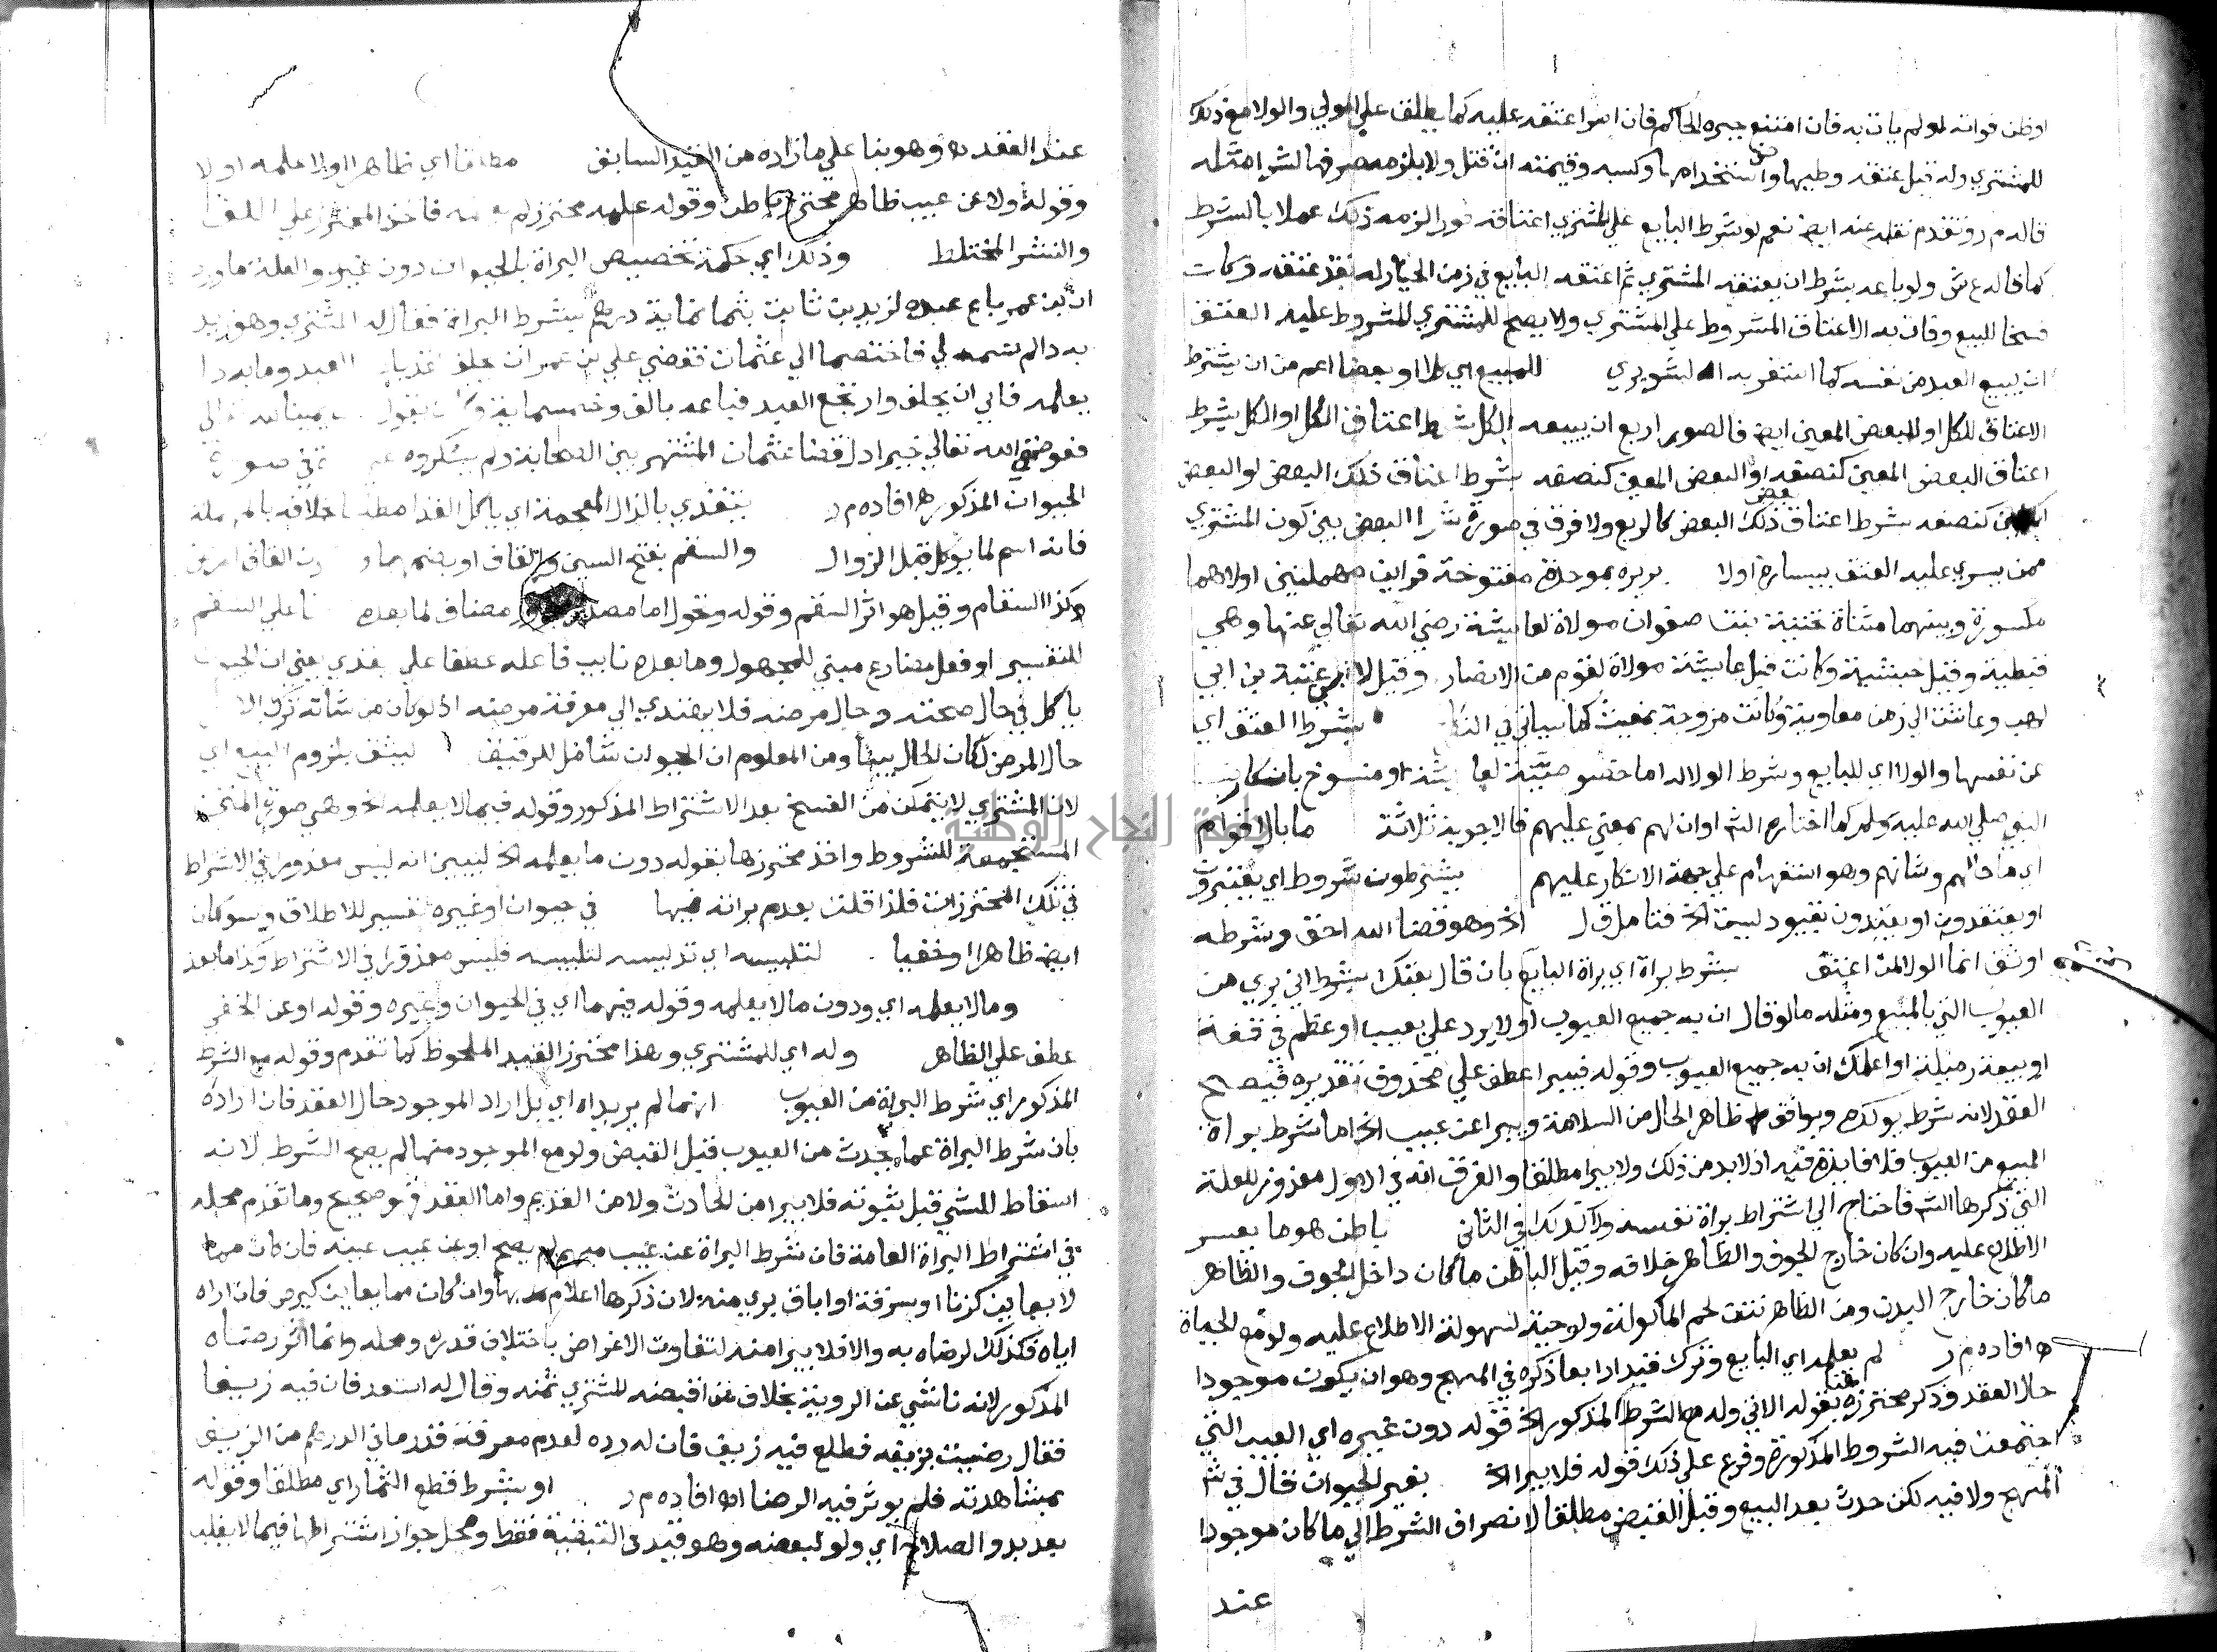 او ظن فواته لو لم يات به فان امتنع جبره الحاكم فان اصر اعتقه عليه كما يطلق علي المولي والولا مع ذلك
للمشتري وله قبل عتقه وطيها واستخدامها وكسبه وقيمته ان قتل ولا يلزمه صرفها لشرا مثله
قاله م ر وتقدم نقله عنه ايض نعم لو شرط البايع علي المشتري اعتاقه فورا لزمه ذلك عملا بالشرط
كما قاله ع ش ولو باعه بشرط ان يعتقه المشتري ثم اعتقه البايع في زمن الخيار له نفذ عتقه وكان
فسخا للبيع وفات به الاعتاق المشروط علي المشتري ولا يصح للمشتري المشروط عليه العتق
ان يبيع العبد من نفسه كما استقر به الشوبري للمبيع اي كلا او بعضا اعم من ان يشترط
الاعتاق للكل او للبعض المعين ايض فالصور اربع ان يبيعه الكل بشرط اعتاق الكل او الكل بشرط
اعتاق البعض المعين كنصفه او البعض المعين كنصفه بشرط اعتاق ذلك البعض او البعض
كنصفه بشرط اعتاق بعض ذلك البعض كالربع ولا فرق في صورة شرا البعض بين كون المشتري
ممن يسري عليه العتق بيساره اولا بريره بموحدة مفتوحة فرايين مهملتين اولاهما
مكسورة وبينهما مثناة تحتية بنت صفوان مولاة لعايشة رضي الله تعالي عنها وهي
قبطية وقيل حبشية وكانت قبل عايشة مولاة لقوم من الانصار وقيل لابن عتبة بن ابي
لهب وعاشت الي زمن معاوية وكانت مزوجة بمغيث كما سياتي في بشرط العتق اي
عن نفسها والولا اي للبايع وشرط الولا له اما خصوصية لعايشة او منسوخ بانكار
النبي صلي الله عليه وسلم كما اختاره الش او ان لهم بمعني عليهم فالاجوبة ثلاثة ما بال اقوام
اي ما حالهم وشانهم وهو استفهام علي جهة الانكار عليهم يشترطون شروط اي يعتبرون
او يعتقدون او يقيدون بقيود ليست الخ فتامل ق ل الخ وهو قضا الله احق وشرطه
اوثق انما الولا لمن اعتق بشرط براة اي براة البايع بان قال بعتك بشرط اني بري من
العيوب التي بالمبيع ومثله ما لو قال ان به جميع العيوب او لا يرد علي بعيب او عظم في قفة
او بيعة رميلة او اعلمك ان به جميع العيوب وقوله فيبرا عطف علي محذوف تقديره فيصح
العقد لانه شرط يوكده ويوافق ظاهر الحال من السلامة ويبرا عن عيب الخ اما شرط براة
المبيع من العيوب فلا فايدة فيه اذ لا بد من ذلك ولا يبرا مطلقا والفرق انه في الاول معذور للعلة
التي ذكرها الش فاحتاج الي اشتراط براة نفسه ولا كذلك في الثاني باطن هو ما يعسر
الاطلاع عليه وان كان خارج الجوف والظاهر خلافه وقيل الباطن ما كان داخل الجوف والظاهر
ما كان خارج البدن ومن الظاهر نتن لحم الماكولة ولو حية لسهولة الاطلاع عليه ولو مع الحياة
افاده م ر لم يعلمه اي البايع وترك قيدا رابعا ذكره في المنهج وهو ان يكون موجودا
حال العقد وذكر محترزه هنا بقوله الاتي وله مع الشرط المذكور الخ قوله دون غيره اي العيب الذي
اجتمعت فيه الشروط المذكورة وفرع علي ذلك قوله فلا يبرا الخ بغير الحيوان قال في ش
المنهج ولا فيه لكن حدث بعد البيع وقبل القبض مطلقا لانصراف الشرط الي ما كان موجودا
عند
عند العقد وهو بنا علي ما زاده من القيد السابق مطلقا اي ظاهرا اولا علمه اولا
وقوله ولا عن عيب ظاهر محترز باطن وقوله علمه محترز لم يعلمه
والنشر المختلط وذلك اي حكمة تخصيص البراة بالحيوان دون غيره والعلة ما ورد
ان ابن عمر باع عبده لزيد بن ثابت بثمانماية درهم بشرط البراة فقال له المشتري وهو زيد
به دا لم تسمه لي فاختصما الي عثمان فقضي علي بن عمر ان يحلف لقد باع العبد وما به دا
يعلمه فابي ان يحلف وارتجع العبد فباعه بالف وخمسماية وكان يقول
فعوضني الله تعالي خيرا دل قضا عثمان المشتهر بين الصحابة ولم ينكروه
الحيوان المذكورة افاده م ر يتغذي بالذال المعجمة اي ياكل الغذا مطلقا خلافه بالمهملة
فانه اسم لما يوكل قبل الزوال والسقم بفتح السين والقاف او بضمهما
وكذا السقام وقيل هو اثر السقم وقوله وتحول اما مصدر مضاف لما بعده علي السقم
للتفسير او فعل مضارع مبني للمجهول وما بعده نايب فاعله عطفا علي يغذي يعني ان الحيوان
ياكل في حال صحته وحال مرضه فلا يهتدي الي معرفة مرضه اذ لو كان من شانه ترك الاكل
حال المرض لكان الحال بينا ومن المعلوم ان الحيوان شامل للرقيق ليثق بلزوم البيع اي
لان المشتري لا يتمكن من الفسخ بعد الاشتراط المذكور وقوله فيما لا يعلمه الخ وهي صورة المتن
المستجمعة للشروط واخذ محترزها بقوله دون ما يعلمه الخ ليبين انه ليس معذورا في الاشتراط
في تلك المحترزات فلذا قلت بعدم براته فيها في حيوان او غيره تفسير للاطلاق وسوا كان
ايض ظاهرا او خفيا لتلبيسه اي تدليسه لتلبيسه فليس معذورا في الاشتراط وكذا ما بعد
وما لا يعلمه اي ودون ما لا يعلمه وقوله فيهما اي في الحيوان وغيره وقوله او عن الخفي
عطف علي الظاهر وله اي للمشتري وهذا محترز القيد الملحوظ كما تقدم وقوله مع الشرط
المذكور اي شرط البراة من العيوب انهما لم يريداه اي بل اراد الموجود حال العقد فان اراده
بان شرط البراة عما يحدث من العيوب قبل القبض ولو مع الموجود منها لم يصح الشرط لانه
اسقاط للشي قبل ثبوته فلا يبرا من الحادث ولا من القديم واما العقد فهو صحيح وما تقدم محله
في اشتراط البراة العامة فان شرط البراة عن عيب مبهم لم يصح او عن عيب عينه فان كان مما
لا يعاين كزنا او سرقة او اباق بري منه لان ذكرها اعلام بها وان كان مما يعاين كبرص فان اراه
اياه فكذلك لرضاه به والا فلا يبرا منه لتفاوت الاغراض باختلاف قدره ومحله وانما اثر رضاه
المذكور لانه ناشي عن الروية بخلاف من اقبضه المشتري ثمنه وقال له استعد فان فيه زيفا
فقال رضيت بزيفه فطلع فيه زيف فان له رده لعدم معرفة قدر ما في الدرهم من الزيف
بمشاهدته فلم يوثر فيه الرضا افاده م ر او بشرط قطع الثمار اي مطلقا وقوله
بعد بدو الصلاح اي ولو لبعضه وهو قيد في التبقية فقط ومحل جواز اشتراطها فيما لا يغلب